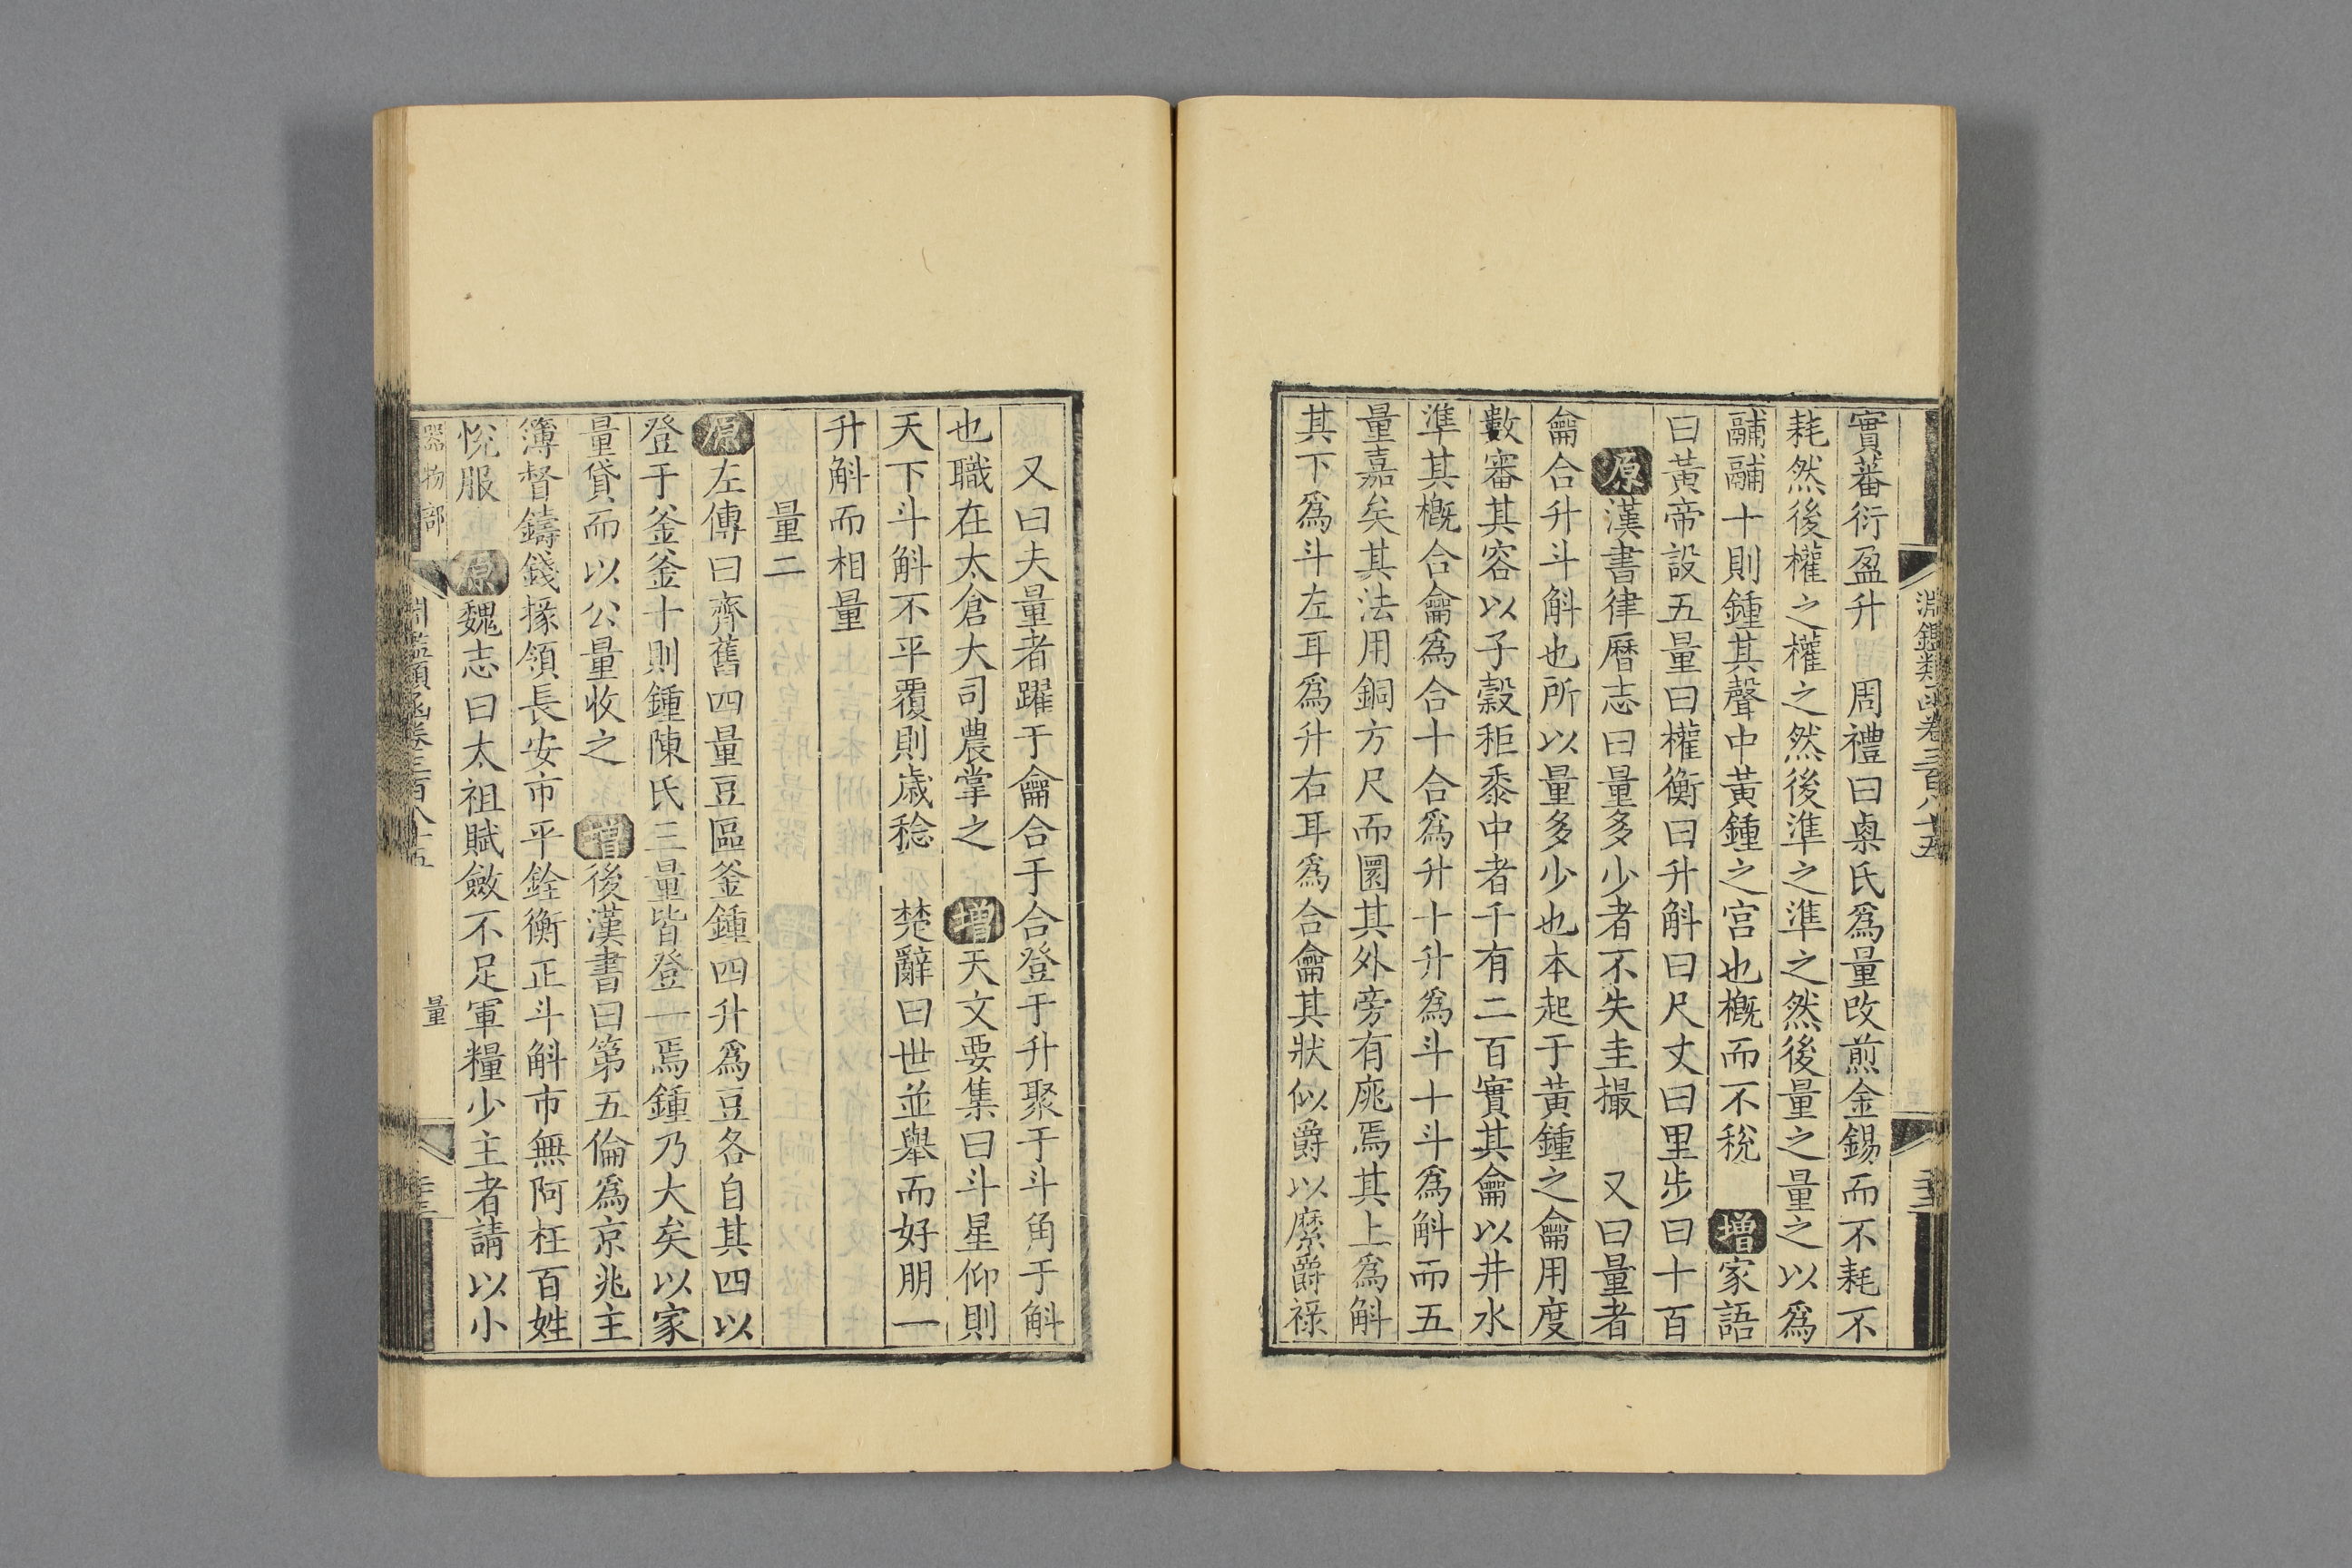 淵鑑類函卷三百八十五
實蕃衍盈升 周禮曰㮚氏爲量改煎金錫而不耗不
耗然後權之權之然後準之準之然後量之量之以爲
鬴鬴十則鍾其聲中黃鍾之宮也槪而不稅 增家語
曰黃帝設五量曰權衡曰升斛曰尺丈曰里步曰十百
原漢書律曆志曰量多少者不失圭撮 又曰量者
龠合升斗斛也所以量多少也本起于黃鍾之龠用度
數審其容以子穀秬黍中者千有二百實其龠以井水
準其槪合龠爲合十合爲升十升爲斗十斗爲斛而五
量嘉矣其法用銅方尺而圜其外旁有庣焉其上爲斛
其下爲斗左耳爲升右耳爲合龠其狀似爵以縻爵祿
又曰夫量者躍于龠合于合登于升聚于斗角于斛
也職在太倉大司農掌之 增天文要集曰斗星仰則
天下斗斛不平覆則歲稔 楚辭曰世並舉而好朋一
升斛而相量
量二
原左傳曰齊舊四量豆區釜鍾四升爲豆各自其四以
登于釜釜十則鍾陳氏三量皆登一焉鍾乃大矣以家
量貸而以公量收之 增後漢書曰第五倫爲京兆主
簿督鑄錢掾領長安市平銓衡正斗斛市無阿枉百姓
悅服 原魏志曰太祖賦斂不足軍糧少主者請以小
器物部
淵鑑類函卷三百八十五
量